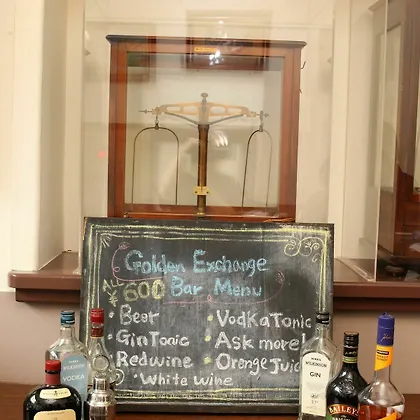 Golden Exchange
ALL ¥600 Bar Menu
• Beer
• Gin Tonic
• Red wine
• White wine
• Vodka Tonic
• Ask more!
• Orenge Juic
WILKINSON
VODKA
WILKINSON
GIN
BAILEYS